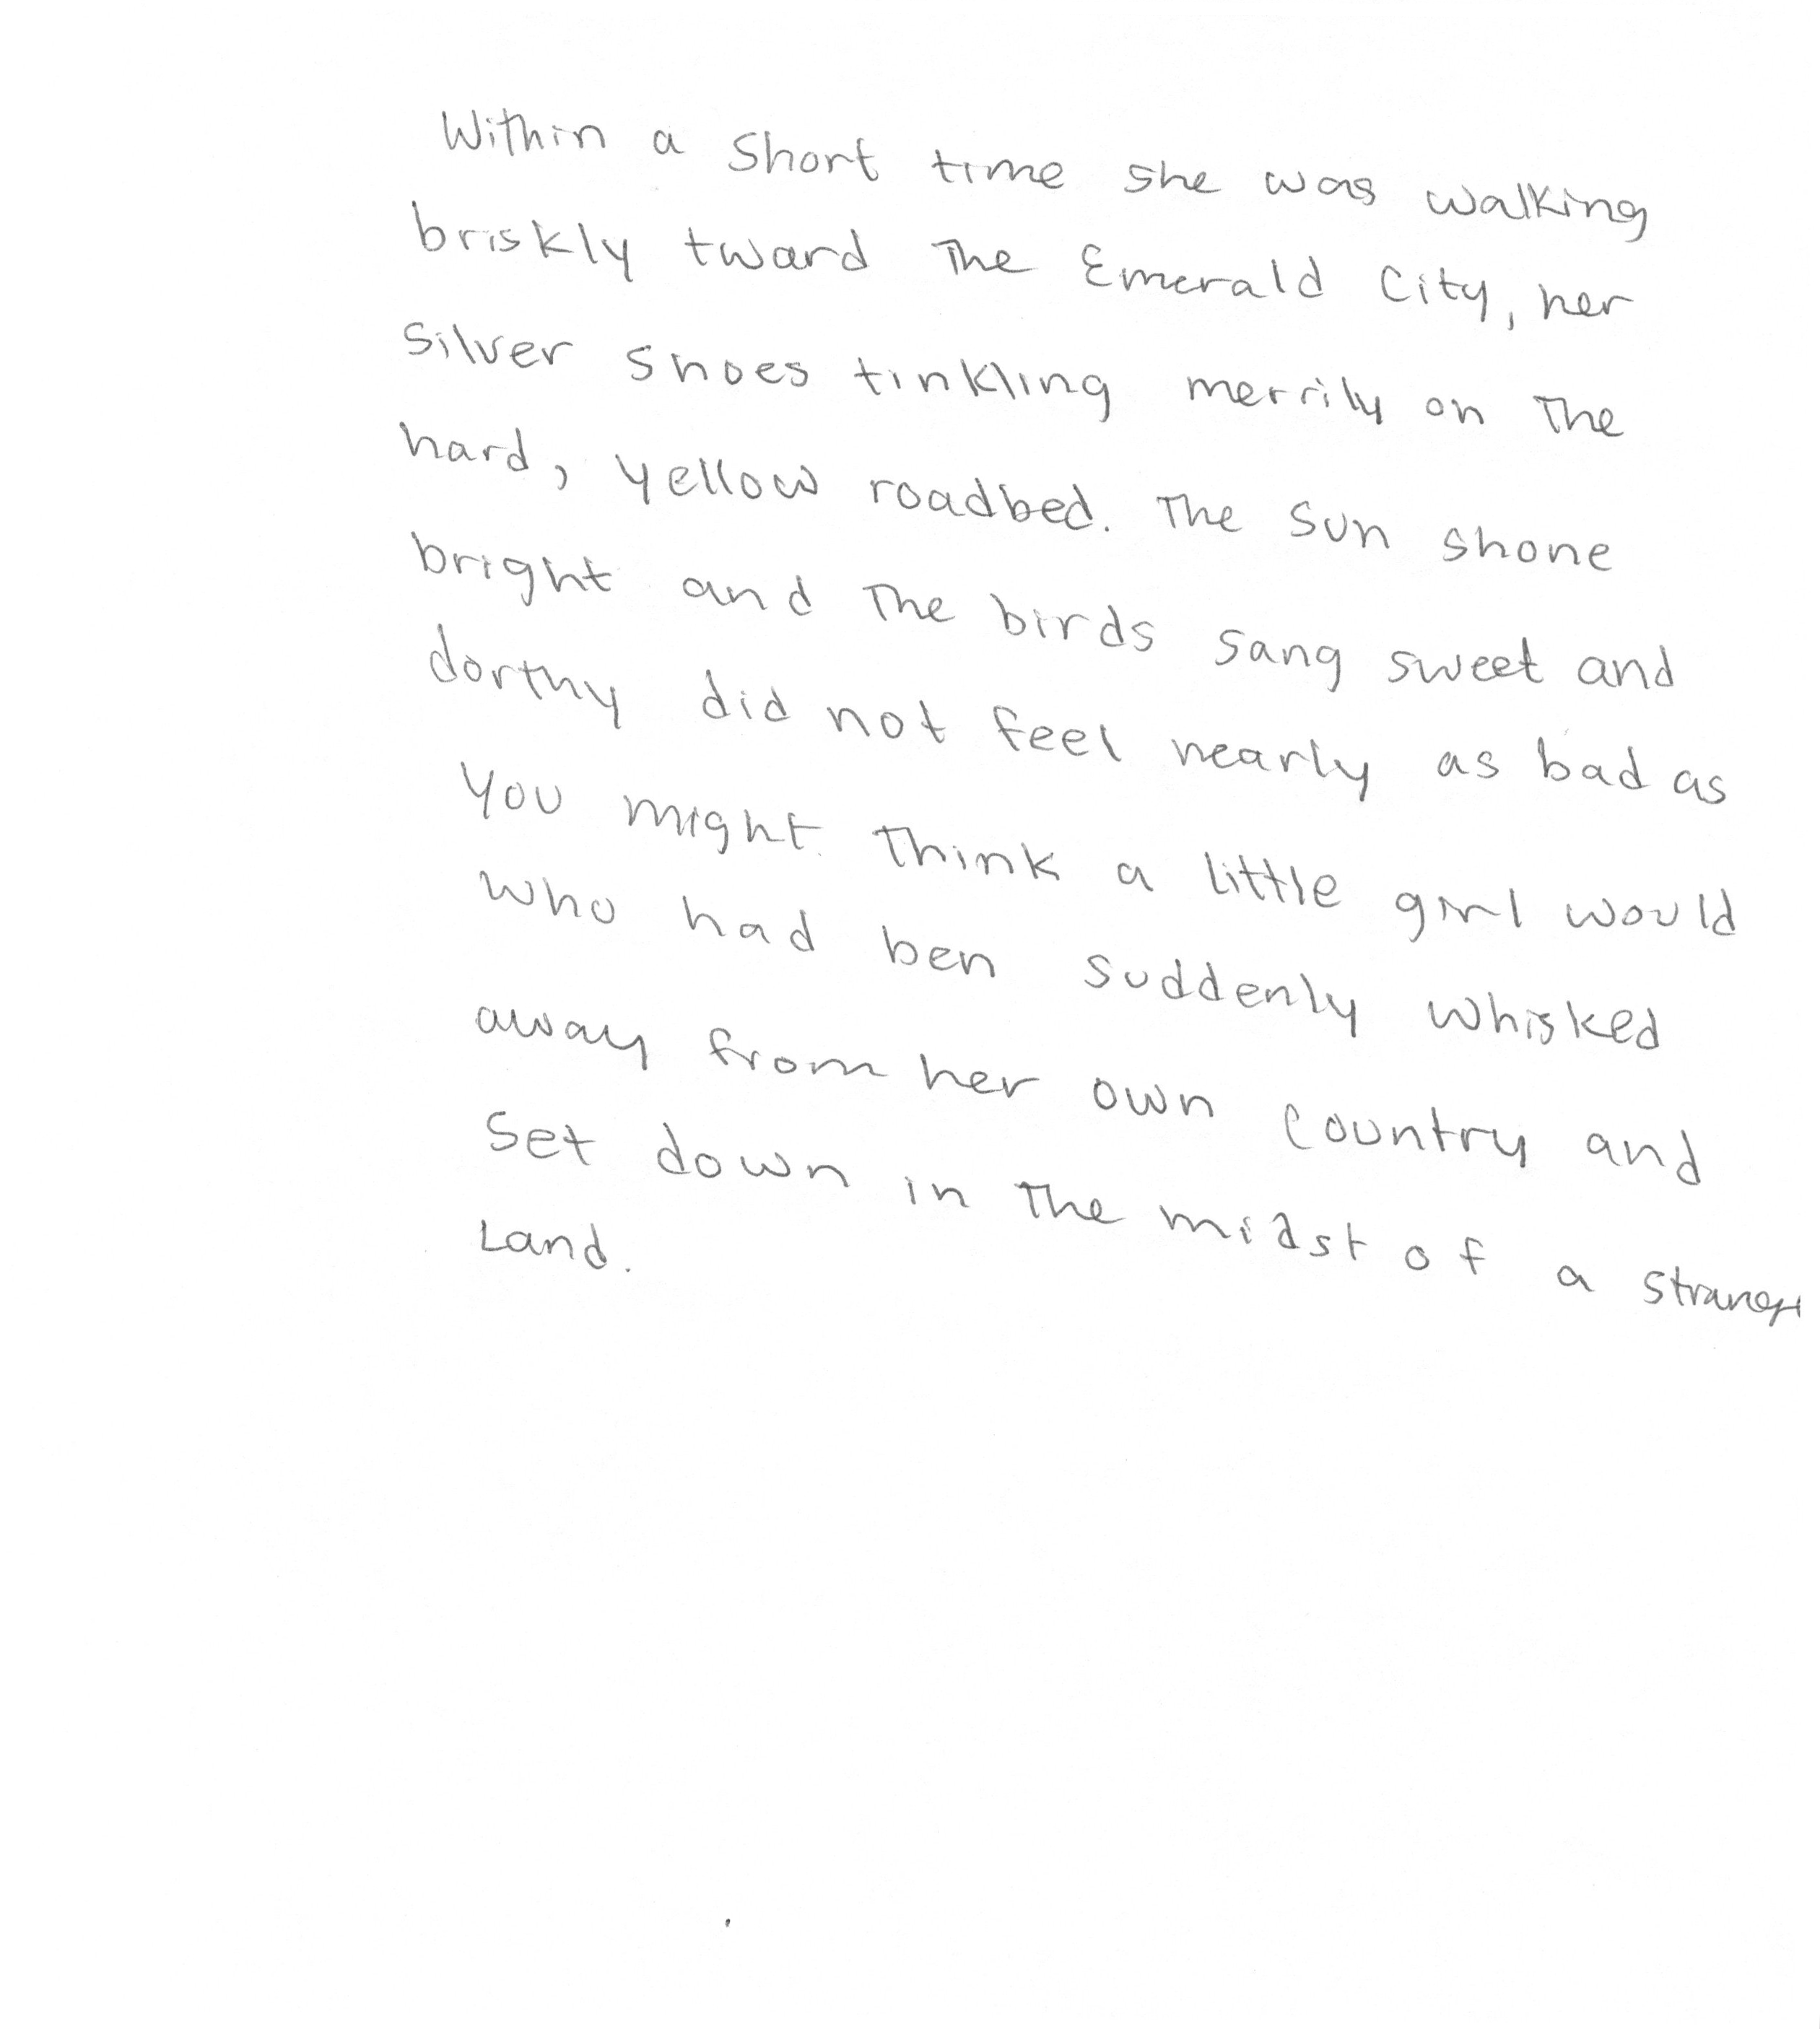 Within a short time she was walking
briskly tward The Emerald City, her
silver shoes tinkling merrily on The
hard, yellow roadbed. The sun shone
bright and The birds sang sweet and
dorthy did not feel nearly as bad as
you might think a little girl would
who had ben suddenly whisked
away from her own country and
set down in The midst of a strange
Land.